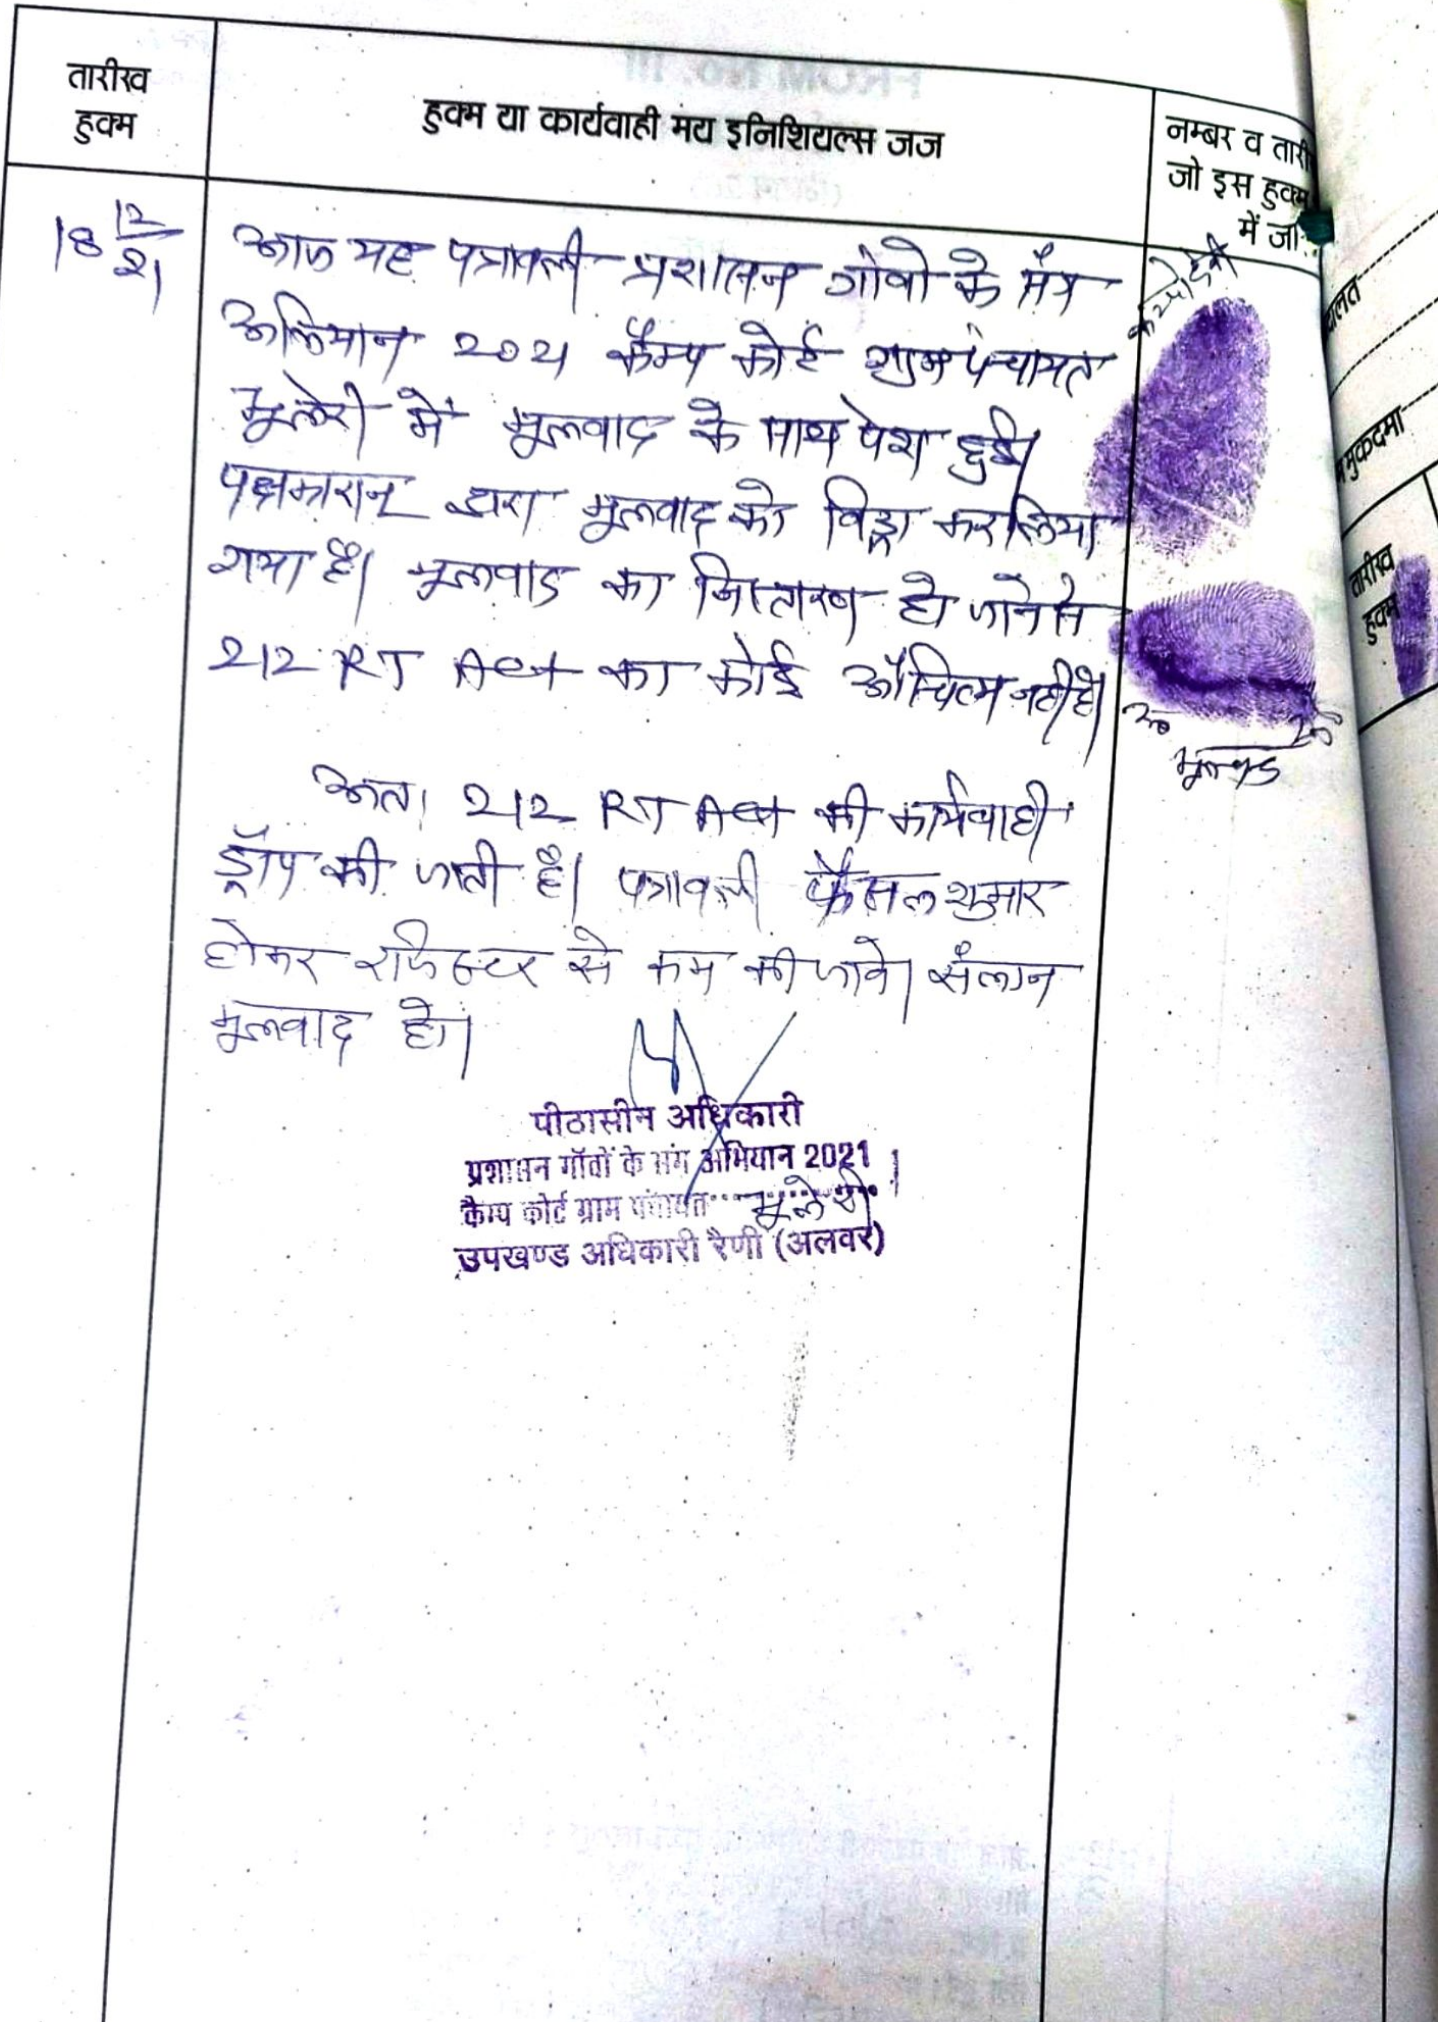 तारीख
हुक्म
हुक्म या कार्यवाही मय इनिशियल्स जज
नम्बर व तारी
जो इस हुक्म
में जा
18 12/21
आज यह पत्रावली प्रशासन गांवो के संग
अभियान 2021 कैम्प कोर्ट ग्राम पंचायत
भूलेरी में मूलवाद के साथ पेश हुई।
पक्षकारान् द्वारा मूलवाद को विड्रा कर लिया
गया है। मूलवाद का निस्तारण हो जाने से
212 RT Act का कोई औचित्य नही है।
अतः 212 RT Act की कार्यवाही
ड्रॉप की जाती है। पत्रावली फैसल शुमार
होकर रजिस्टर से कम की जावे। संलग्न
मूलवाद हो।
पीठासीन अधिकारी
प्रशासन गाँवों के संग अभियान 2021
कैम्प कोर्ट ग्राम पंचायत भूलेरी
उपखण्ड अधिकारी रैणी (अलवर)
मूलचन्द
मुकदमा
तारीख
हुक्म